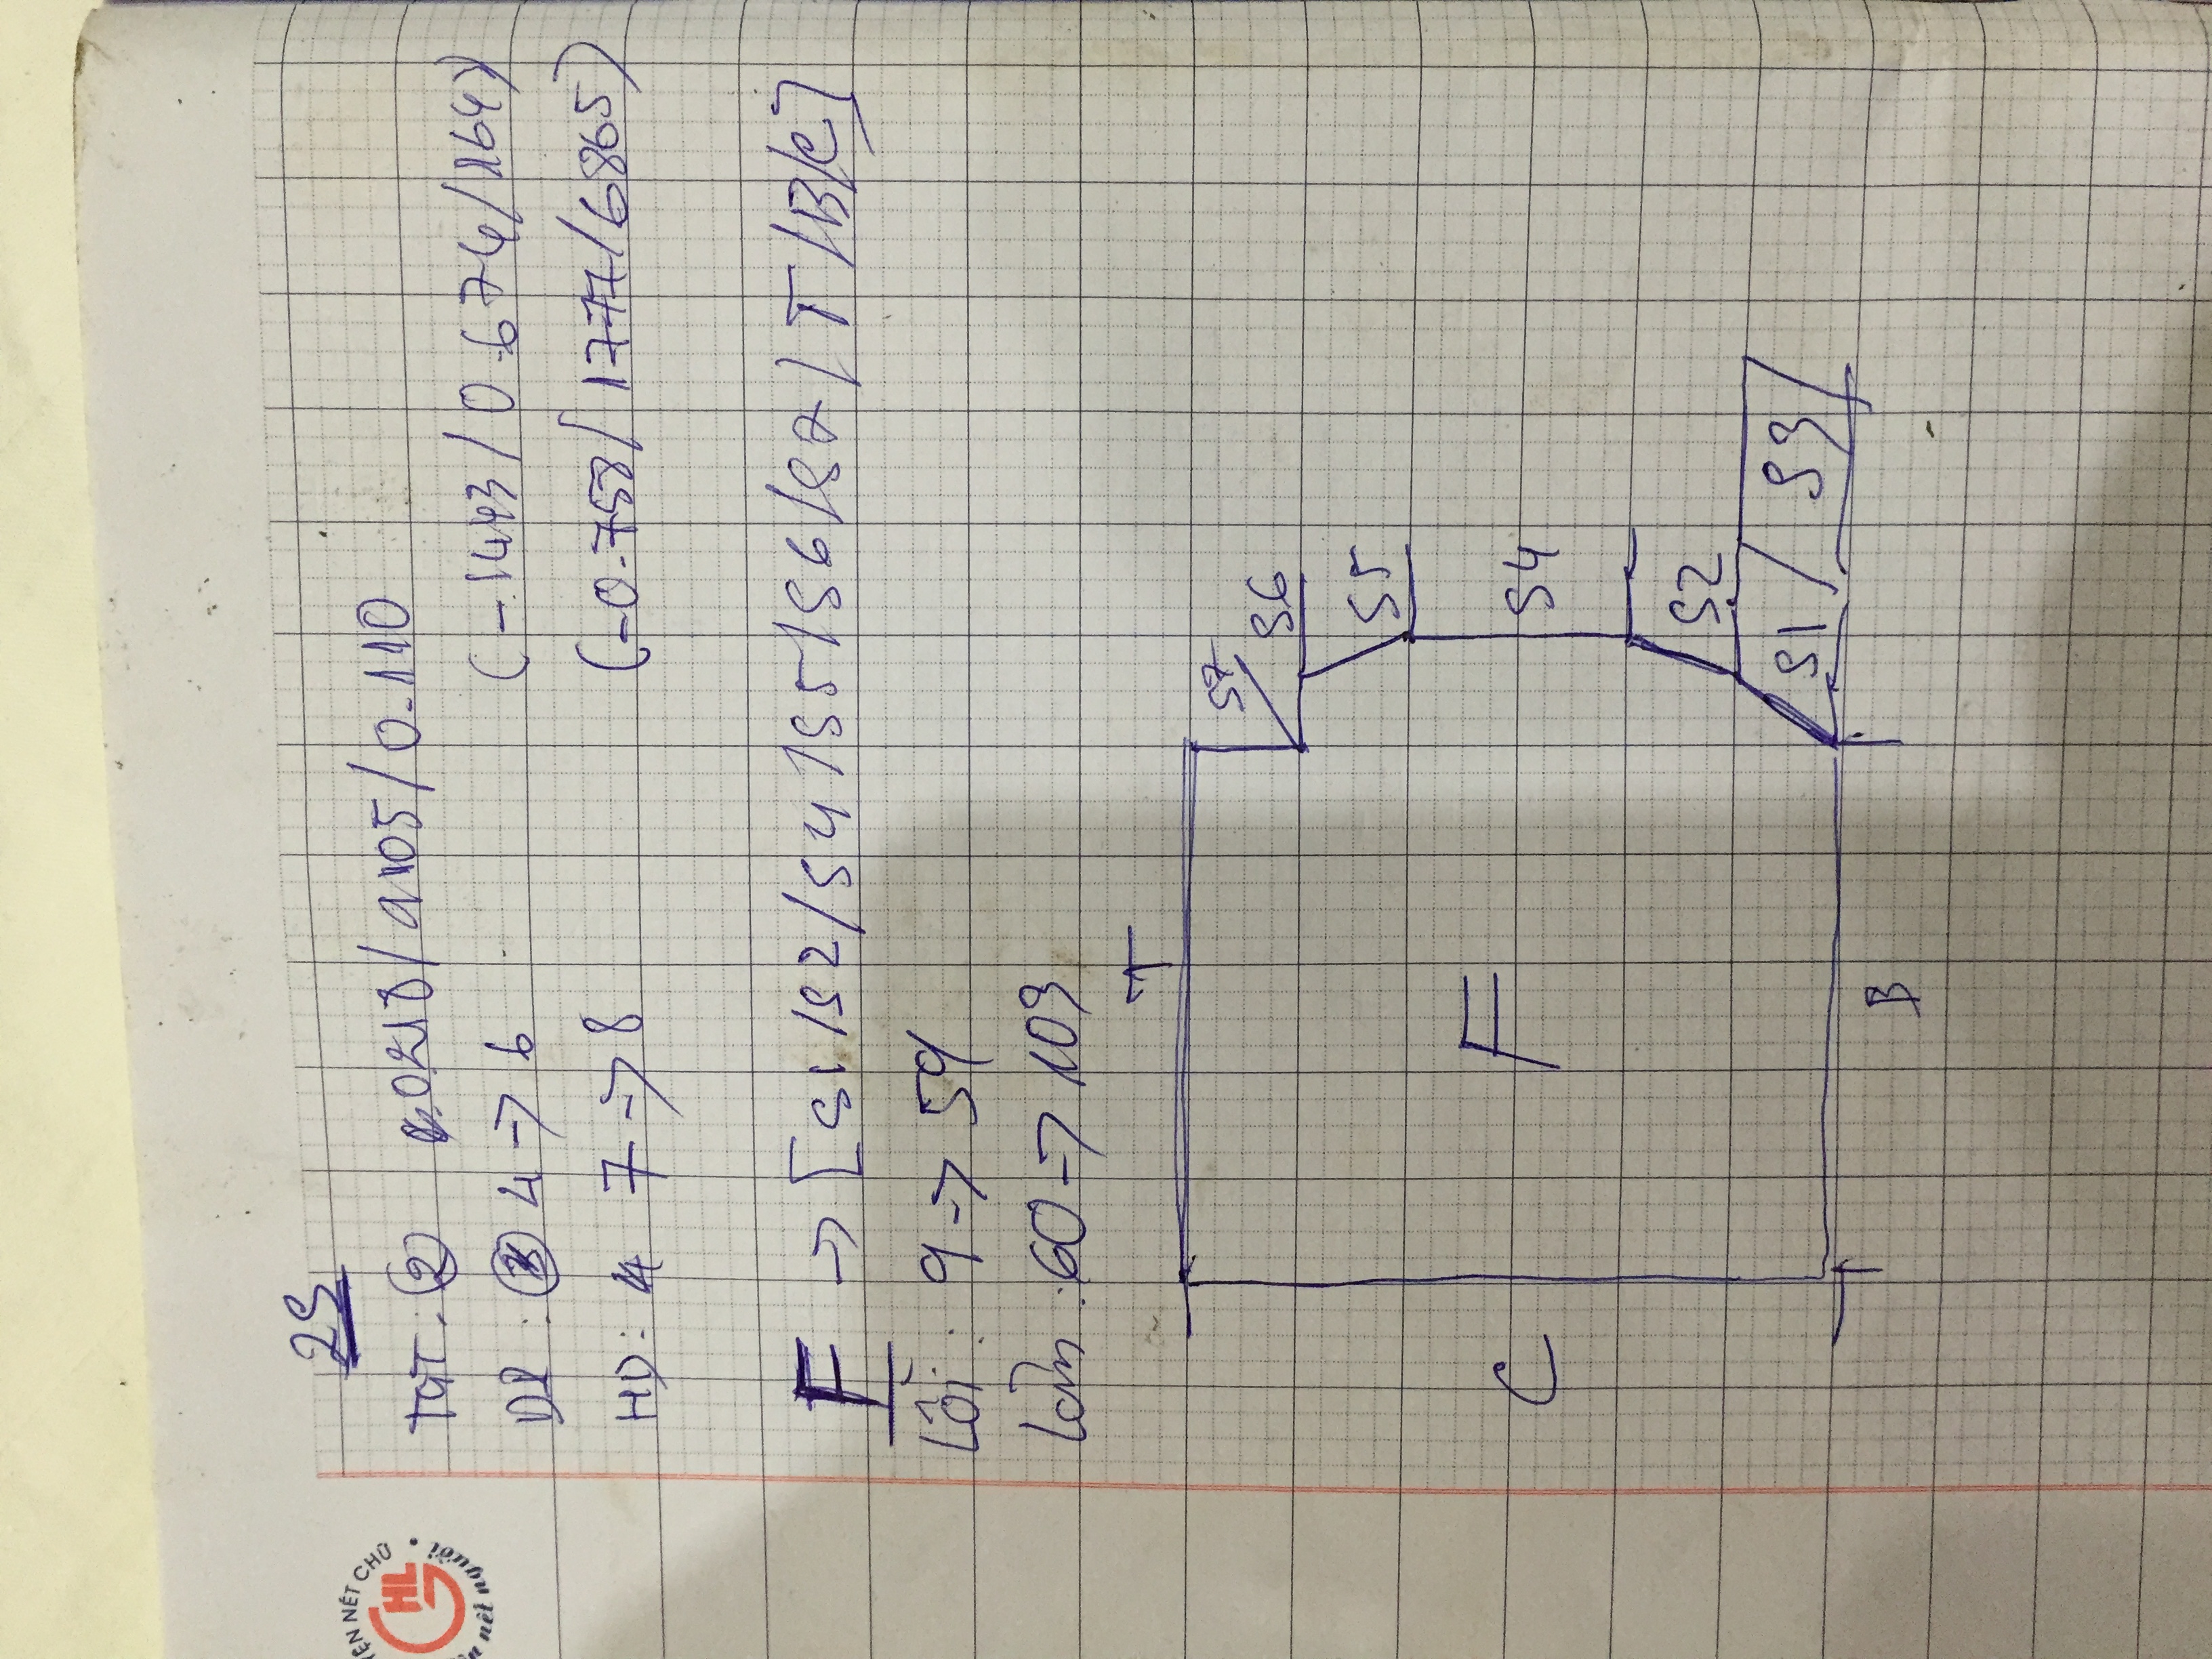 YỆN NÉT CHỮ
HL
n nết người.
2S
TGT: 2 0.0218/9105/0.110
DP: 4 -> 6 (-.1443/0.674/1647)
HD: 4 7 -> 8 (-0.758/1777/6865)
F -> [S1/S2/S4/S5/S6/S7/T/B/C]
Lồi: 9 -> 59
Lõm: 60 -> 103
T
S7
S6
S5
C F S4
S2
S1 S3
B